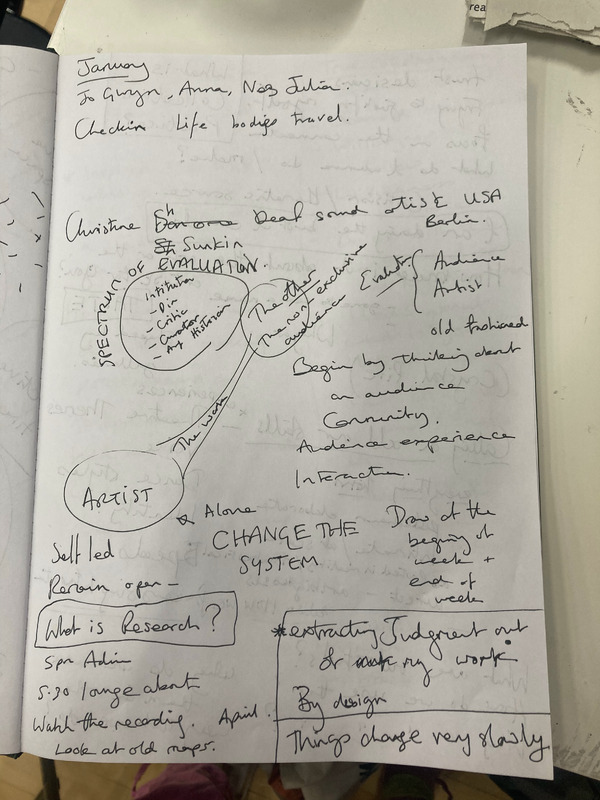 January
Jo Gwyn, Anna, Naz Julia.
Checkin Life bodies travel.
Christine Deaf sound artist USA
Berlin.
Sh Sunkin
SPECTRUM OF EVALUATION.
Intitution
- Dir
- Critic
- Curator
- Art Historian
The other
The non-exclusive
audience
Evaluator {
Audience
Artist
old fashioned
Begin by thinking about
an audience
Community.
Audience experience
Interaction.
The work
ARTIST
Alone
CHANGE THE
SYSTEM
Draw at the
beginning of
week +
end of
week
Self led
Remain open -
What is Research?
5pm Admin
5:30 lounge about
Watch the recording. April.
Look at old maps.
*extracting Judgment out
of my work.
By design
Things change very slowly
rea